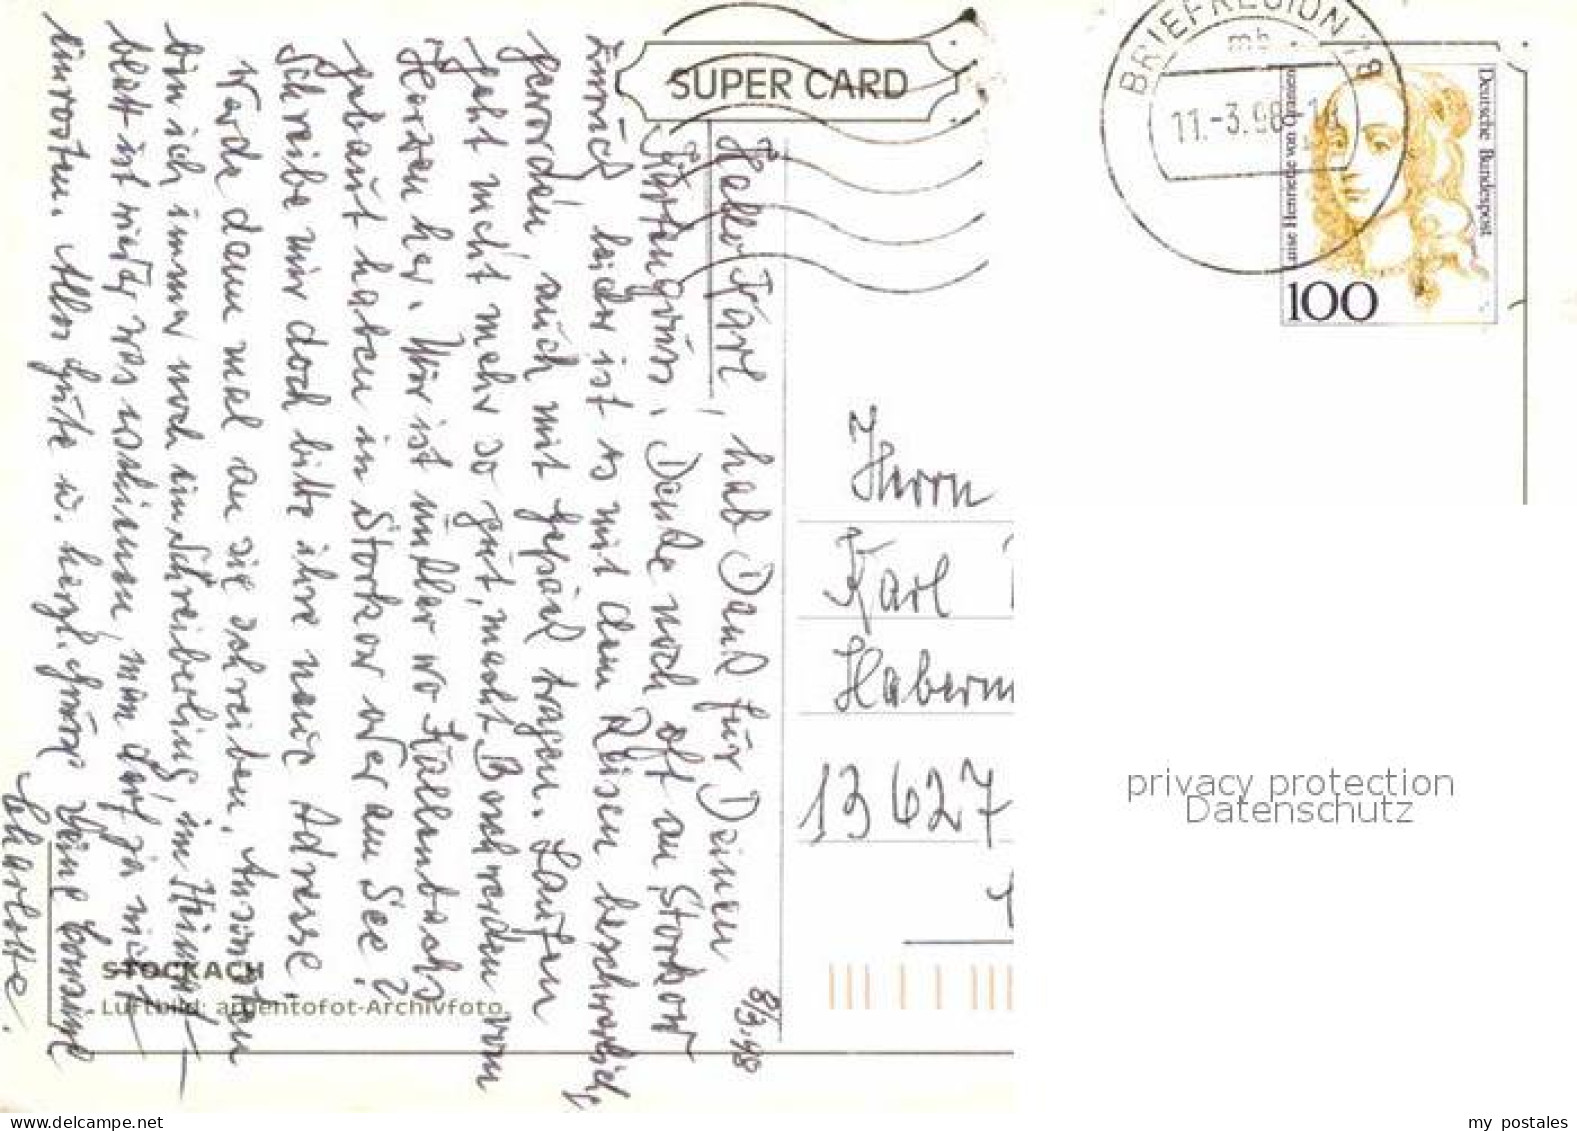 SUPER CARD
BRIEFREGION 78
mb
11.-3.98-1
Deutsche Bundespost
Luise Henriette von Oranien
100
8/3.98
Hallo Karl, hab Dank für Deinen
Kartengruss. Denke noch oft an Storkow
zurück, leider ist es mit dem Reisen beschwerlich
geworden, auch mit Gepäck tragen. Laufen
geht nicht mehr so gut, macht Beschwerden vom
Herzen her. Wir ist unklar wo Kallenbachs
gebaut haben in Storkow oder am See?
Schreibe mir doch bitte ihre neue Adresse.
Werde dann mal an sie schreiben. Ansonsten
bin ich immer noch ein Schreiberling, im Heimat-
blatt ist wieder was erschienen, man darf ja nicht
einrosten. Alles Gute u. herzl. Grüsse Deine Cousine
Charlotte.
Herrn
Karl
Haberm
13627
STOCKACH
Luftbild: argentofot-Archivfoto
privacy protection
Datenschutz
www.delcampe.net
my_postales